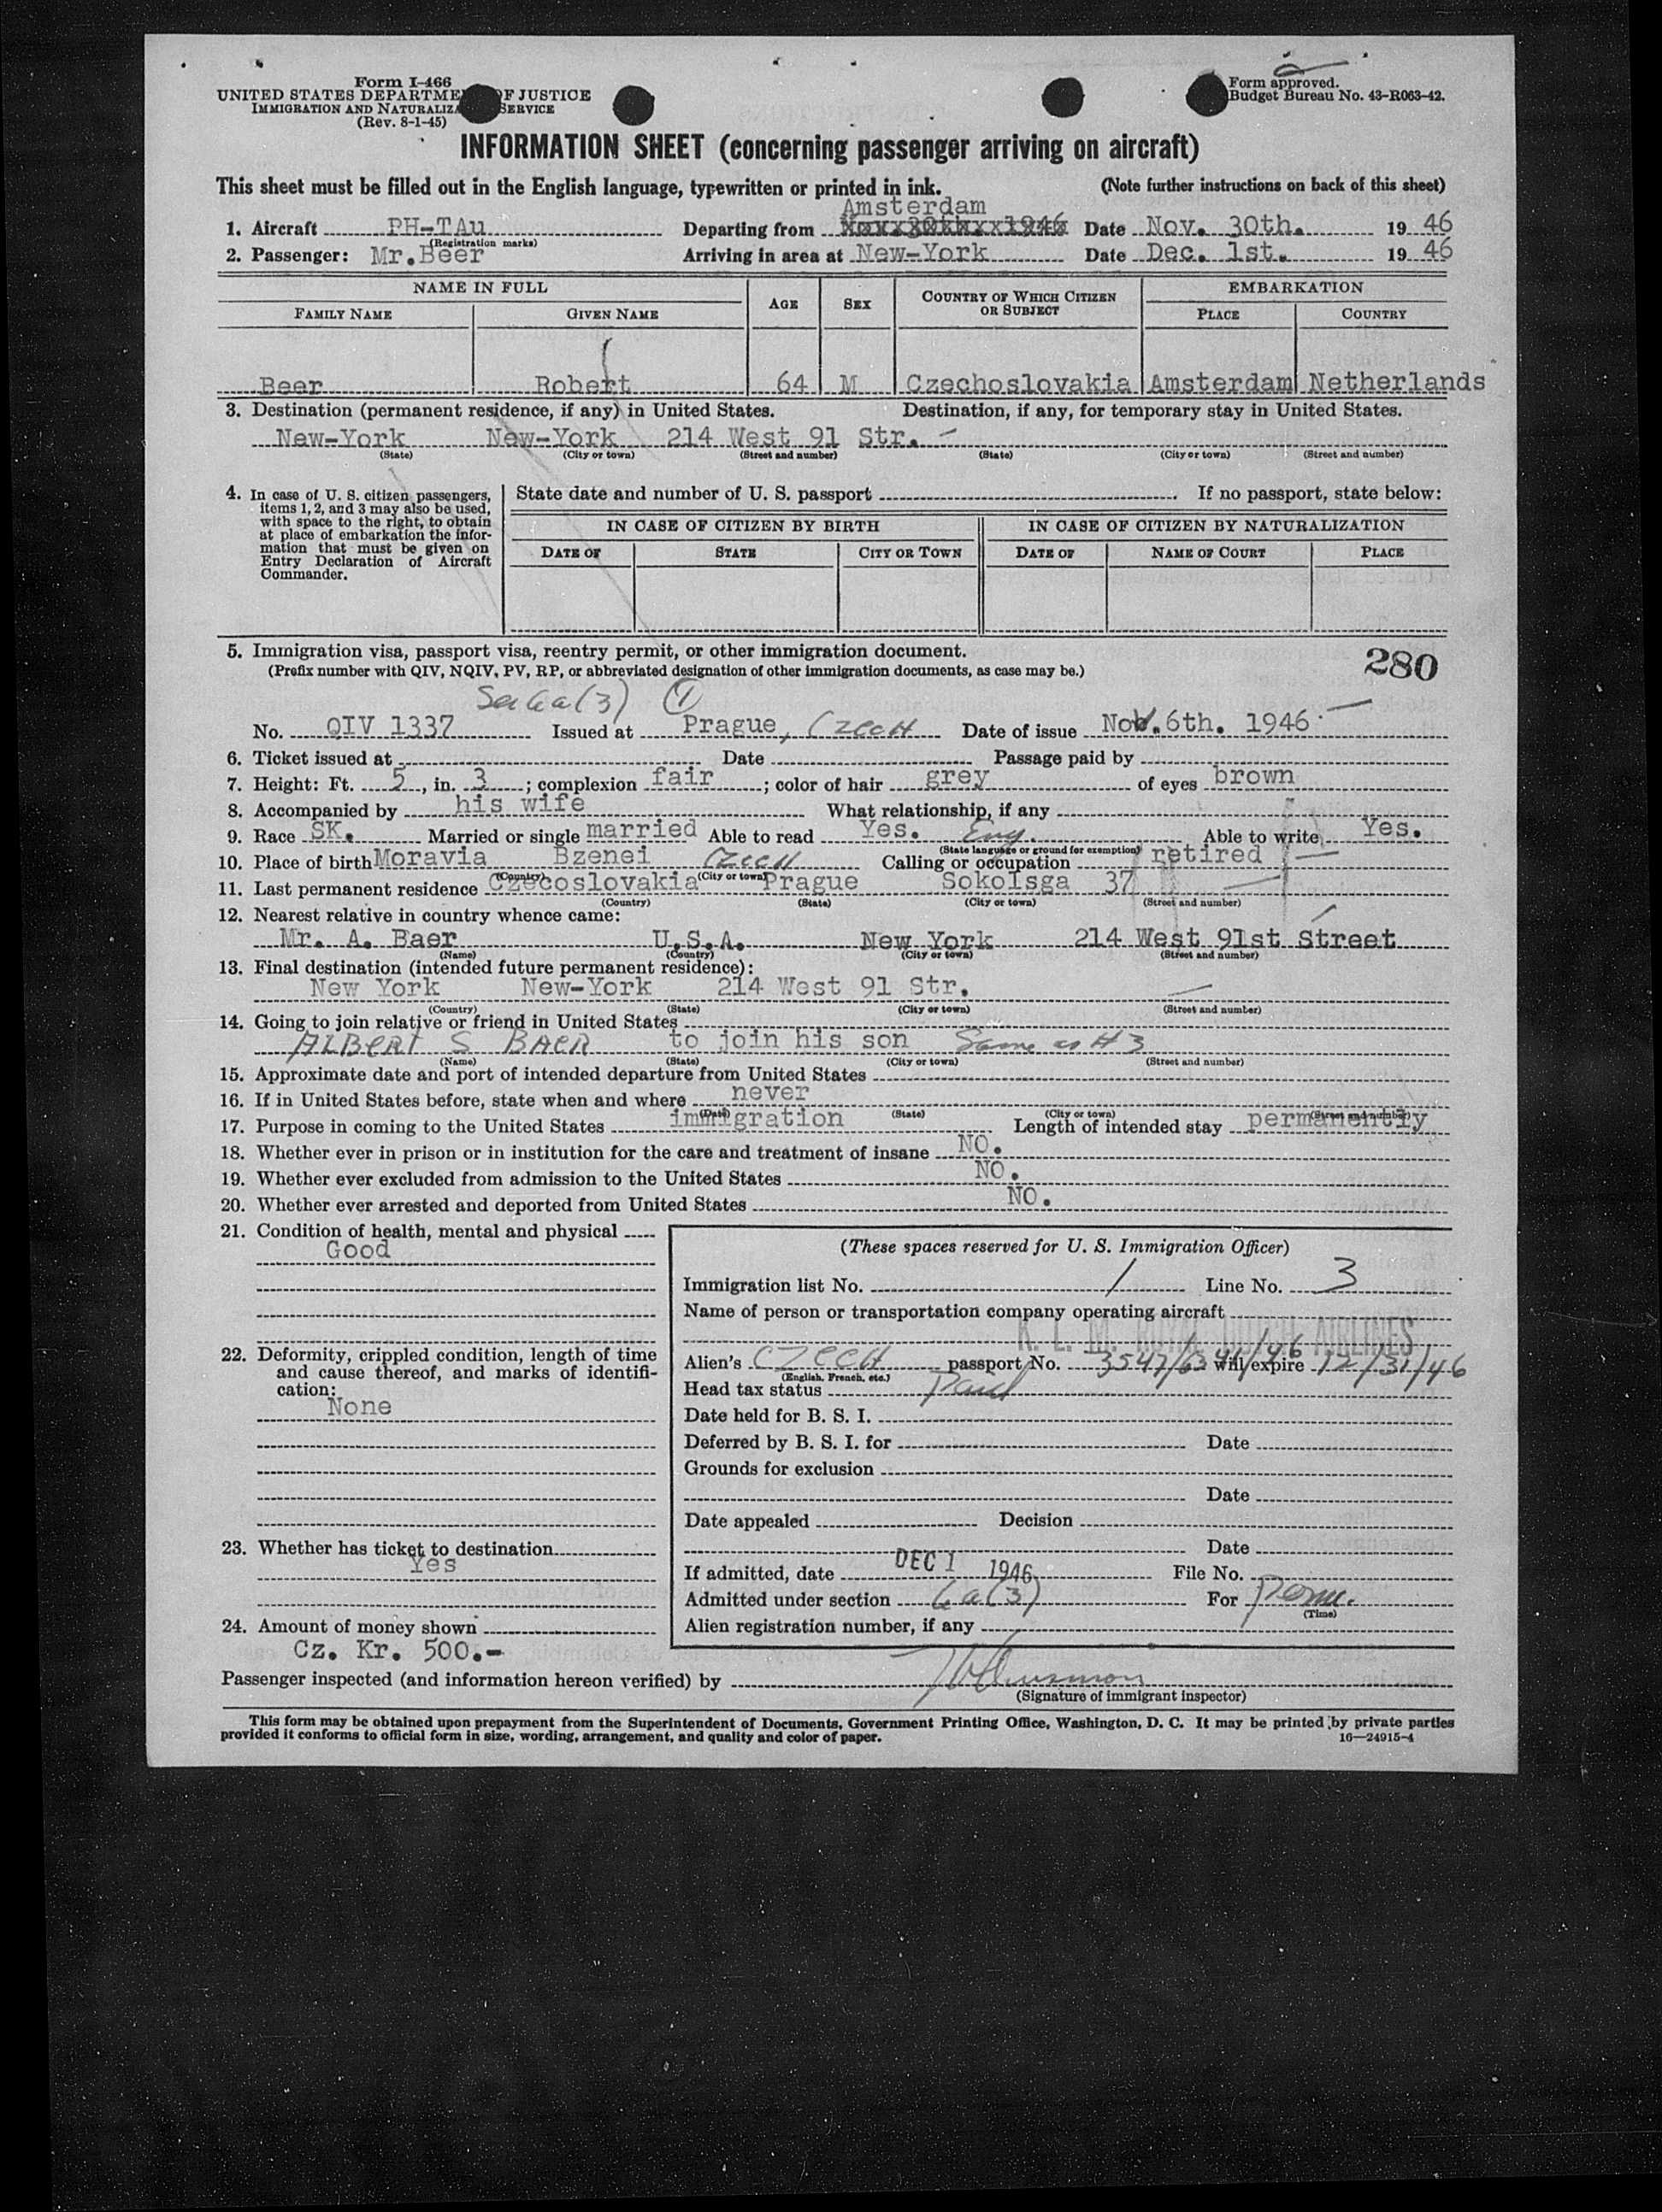 Form I-466
UNITED STATES DEPARTMENT OF JUSTICE
IMMIGRATION AND NATURALIZATION SERVICE
(Rev. 8-1-45)
Form approved.
Budget Bureau No. 43-R063-42.
INFORMATION SHEET (concerning passenger arriving on aircraft)
This sheet must be filled out in the English language, typewritten or printed in ink. (Note further instructions on back of this sheet)
Amsterdam
1. Aircraft PH-TAu Departing from Date Nov. 30th. 19 46
(Registration marks)
2. Passenger: Mr. Beer Arriving in area at New-York Date Dec. 1st. 19 46
NAME IN FULL AGE SEX COUNTRY OF WHICH CITIZEN OR SUBJECT EMBARKATION
FAMILY NAME GIVEN NAME PLACE COUNTRY
Beer Robert 64 M Czechoslovakia Amsterdam Netherlands
3. Destination (permanent residence, if any) in United States. Destination, if any, for temporary stay in United States.
New-York New-York 214 West 91 Str. -
(State) (City or town) (Street and number) (State) (City or town) (Street and number)
4. In case of U. S. citizen passengers, items 1, 2, and 3 may also be used, with space to the right, to obtain at place of embarkation the information that must be given on Entry Declaration of Aircraft Commander.
State date and number of U. S. passport If no passport, state below:
IN CASE OF CITIZEN BY BIRTH IN CASE OF CITIZEN BY NATURALIZATION
DATE OF STATE CITY OR TOWN DATE OF NAME OF COURT PLACE
5. Immigration visa, passport visa, reentry permit, or other immigration document. 280
(Prefix number with QIV, NQIV, PV, RP, or abbreviated designation of other immigration documents, as case may be.)
Sec 6a(3) 1
No. QIV 1337 Issued at Prague, Czech Date of issue Nov. 6th. 1946
6. Ticket issued at Date Passage paid by
7. Height: Ft. 5, in. 3; complexion fair; color of hair grey of eyes brown
8. Accompanied by his wife What relationship, if any
9. Race SK. Married or single married Able to read Yes. Eng. Able to write Yes.
(State language or ground for exemption)
10. Place of birth Moravia Bzenei Czech Calling or occupation retired
(Country) (City or town)
11. Last permanent residence Czecoslovakia Prague Sokolsga 37
(Country) (State) (City or town) (Street and number)
12. Nearest relative in country whence came:
Mr. A. Baer U.S.A. New York 214 West 91st Street
(Name) (Country) (City or town) (Street and number)
13. Final destination (intended future permanent residence):
New York New-York 214 West 91 Str.
(Country) (State) (City or town) (Street and number)
14. Going to join relative or friend in United States
ALBERT S BAER to join his son Same as # 3
(Name) (State) (City or town) (Street and number)
15. Approximate date and port of intended departure from United States
16. If in United States before, state when and where never
(Date) (State) (City or town) (Street and number)
17. Purpose in coming to the United States immigration Length of intended stay permanently
18. Whether ever in prison or in institution for the care and treatment of insane NO.
19. Whether ever excluded from admission to the United States NO.
20. Whether ever arrested and deported from United States NO.
21. Condition of health, mental and physical
Good
22. Deformity, crippled condition, length of time and cause thereof, and marks of identification:
None
23. Whether has ticket to destination
Yes
24. Amount of money shown
Cz. Kr. 500.-
(These spaces reserved for U. S. Immigration Officer)
Immigration list No. 1 Line No. 3
Name of person or transportation company operating aircraft
K. L. M. ROYAL DUTCH AIRLINES
Alien's CZECH passport No. 3547/63 will expire 12/31/46
(English, French, etc.)
Head tax status Paid
Date held for B. S. I.
Deferred by B. S. I. for Date
Grounds for exclusion
Date
Date appealed Decision
Date
If admitted, date DEC 1 1946 File No.
Admitted under section 6a(3) For Perm.
(Time)
Alien registration number, if any
Passenger inspected (and information hereon verified) by
(Signature of immigrant inspector)
This form may be obtained upon prepayment from the Superintendent of Documents, Government Printing Office, Washington, D. C. It may be printed by private parties
provided it conforms to official form in size, wording, arrangement, and quality and color of paper. 16—24915-4